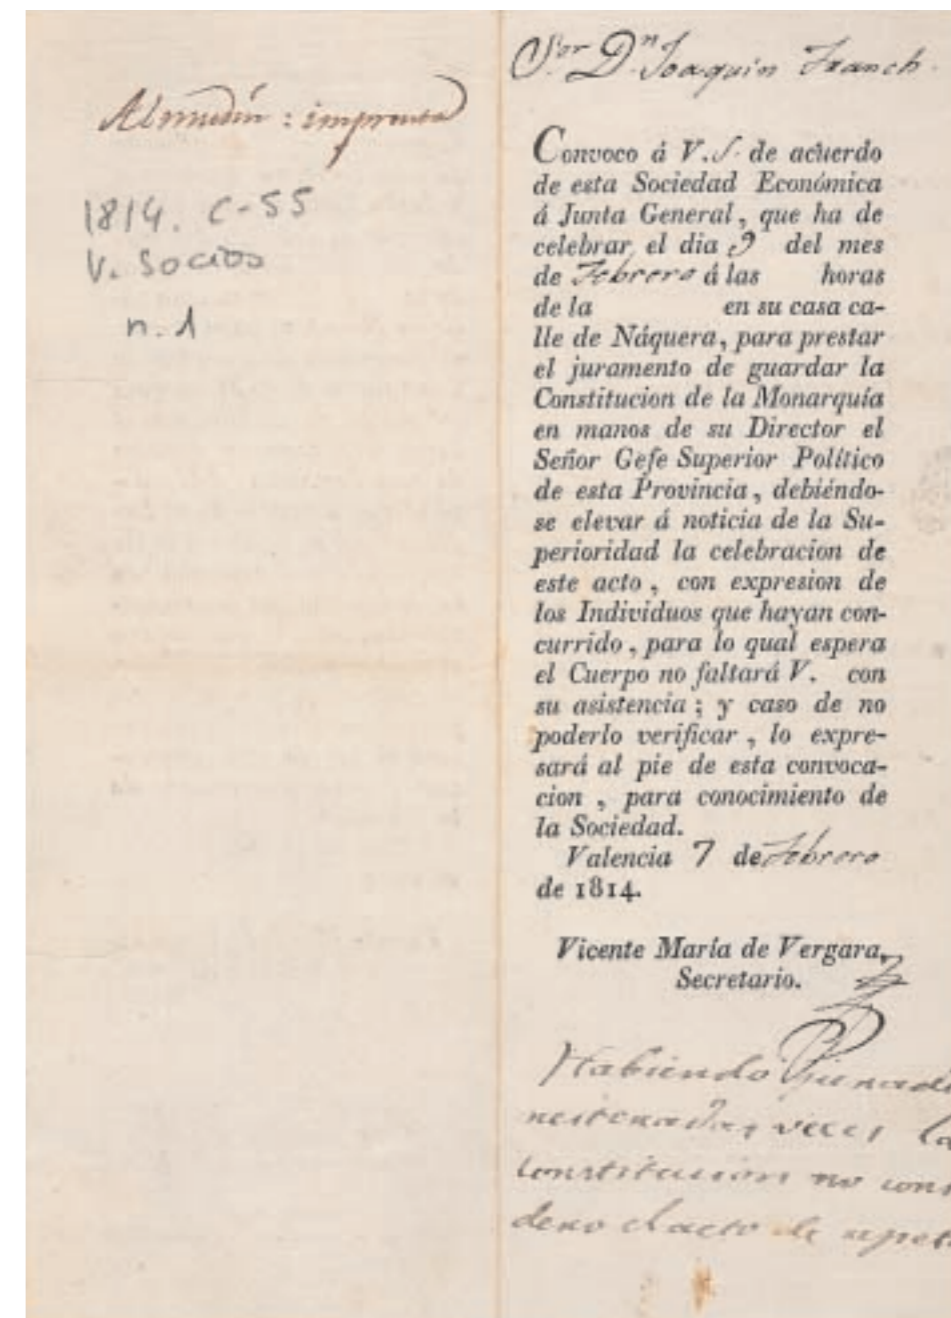 Almudín: imprenta
1814. C-55
V. Socios
n. 1
Sor Dn Joaquin Franch.
Convoco á V. S. de acuerdo
de esta Sociedad Económica
á Junta General, que ha de
celebrar el dia 9 del mes
de Febrero á las horas
de la en su casa ca-
lle de Náquera, para prestar
el juramento de guardar la
Constitucion de la Monarquía
en manos de su Director el
Señor Gefe Superior Político
de esta Provincia, debiéndo-
se elevar á noticia de la Su-
perioridad la celebracion de
este acto, con expresion de
los Individuos que hayan con-
currido, para lo qual espera
el Cuerpo no faltará V. con
su asistencia; y caso de no
poderlo verificar, lo expre-
sará al pie de esta convoca-
cion, para conocimiento de
la Sociedad.
Valencia 7 de Febrero
de 1814.
Vicente María de Vergara,
Secretario.
Habiendo
veces la
Constitucion no consi
dero el acto de